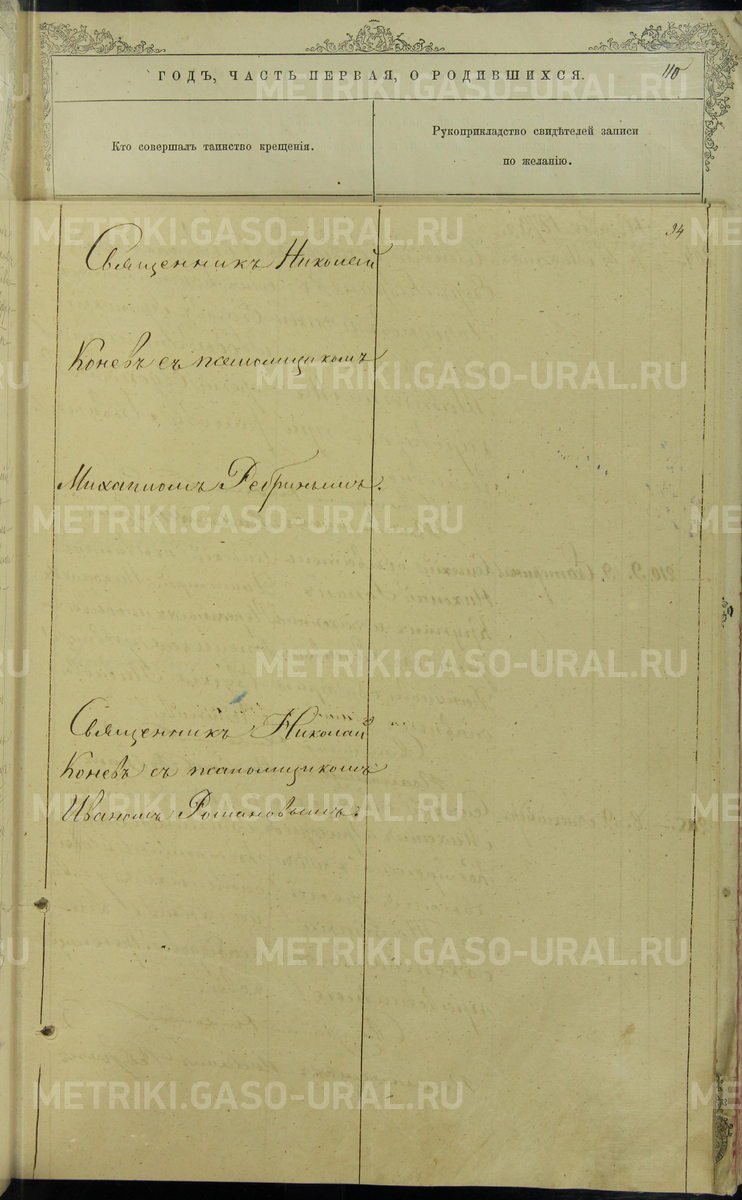 ГОДЪ, ЧАСТЬ ПЕРВАЯ, О РОДИВШИХСЯ.
110
Кто совершалъ таинство крещенія.
Рукоприкладство свидѣтелей записи
по желанію.
94
Священникъ Николай
Коневъ съ псаломщикомъ
Михаиломъ Ребринымъ.
Священникъ Николай
Коневъ съ псаломщикомъ
Иваномъ Романовымъ.
METRIKI.GASO-URAL.RU